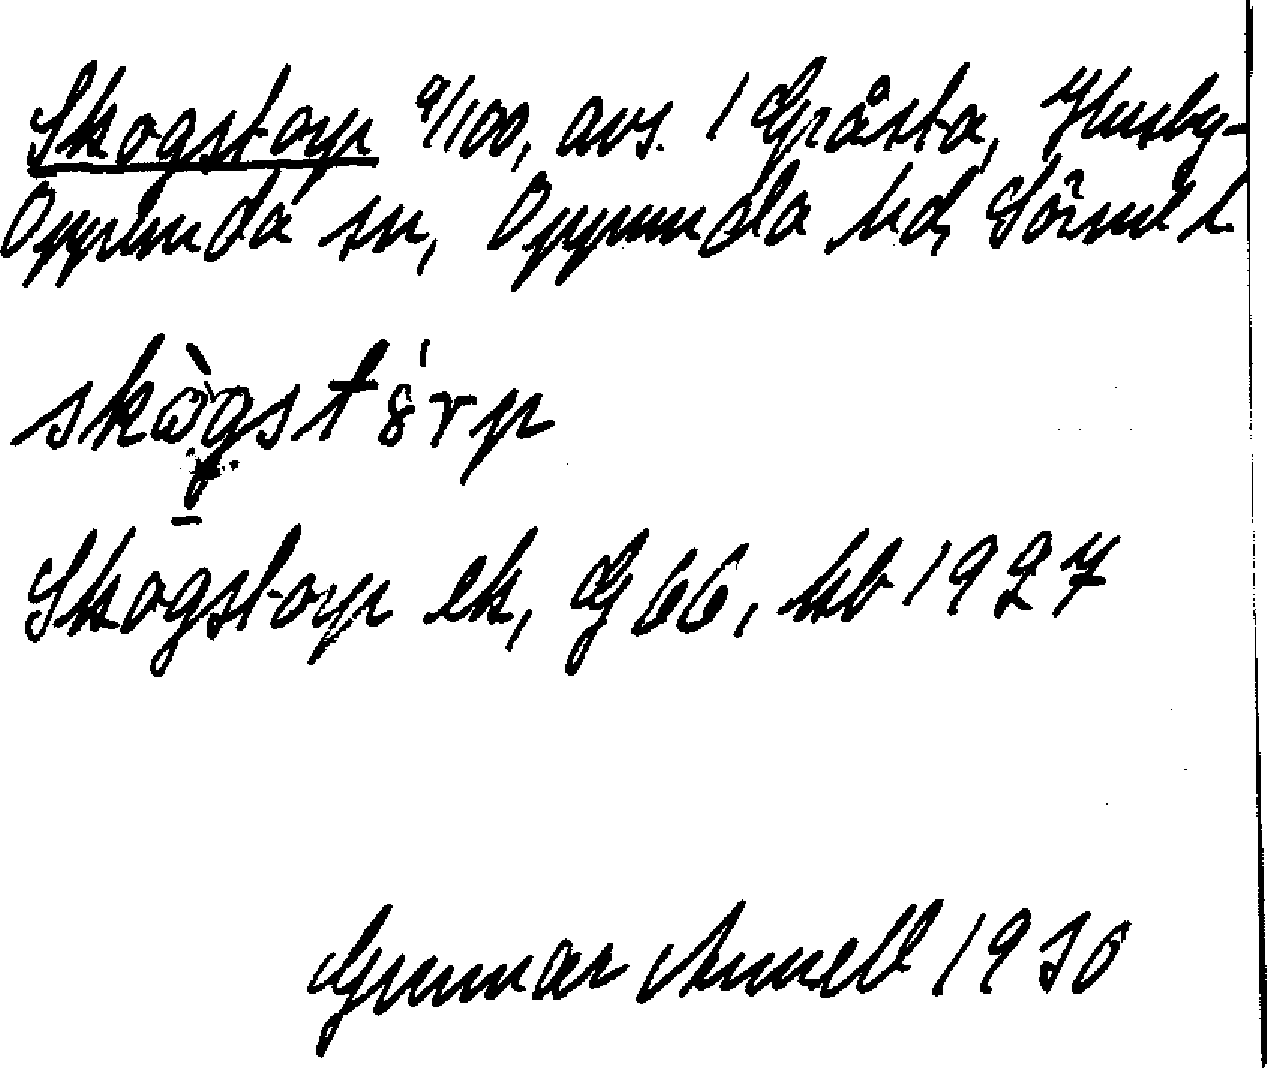 Skogstorp 9/100, avs. 1 Gråsta, Husby-
Oppunda sn, Oppunda hd, Sörml l.
skògstórp
Skogstorp ek, G 66, kb 1927
Gunnar Annell 1930